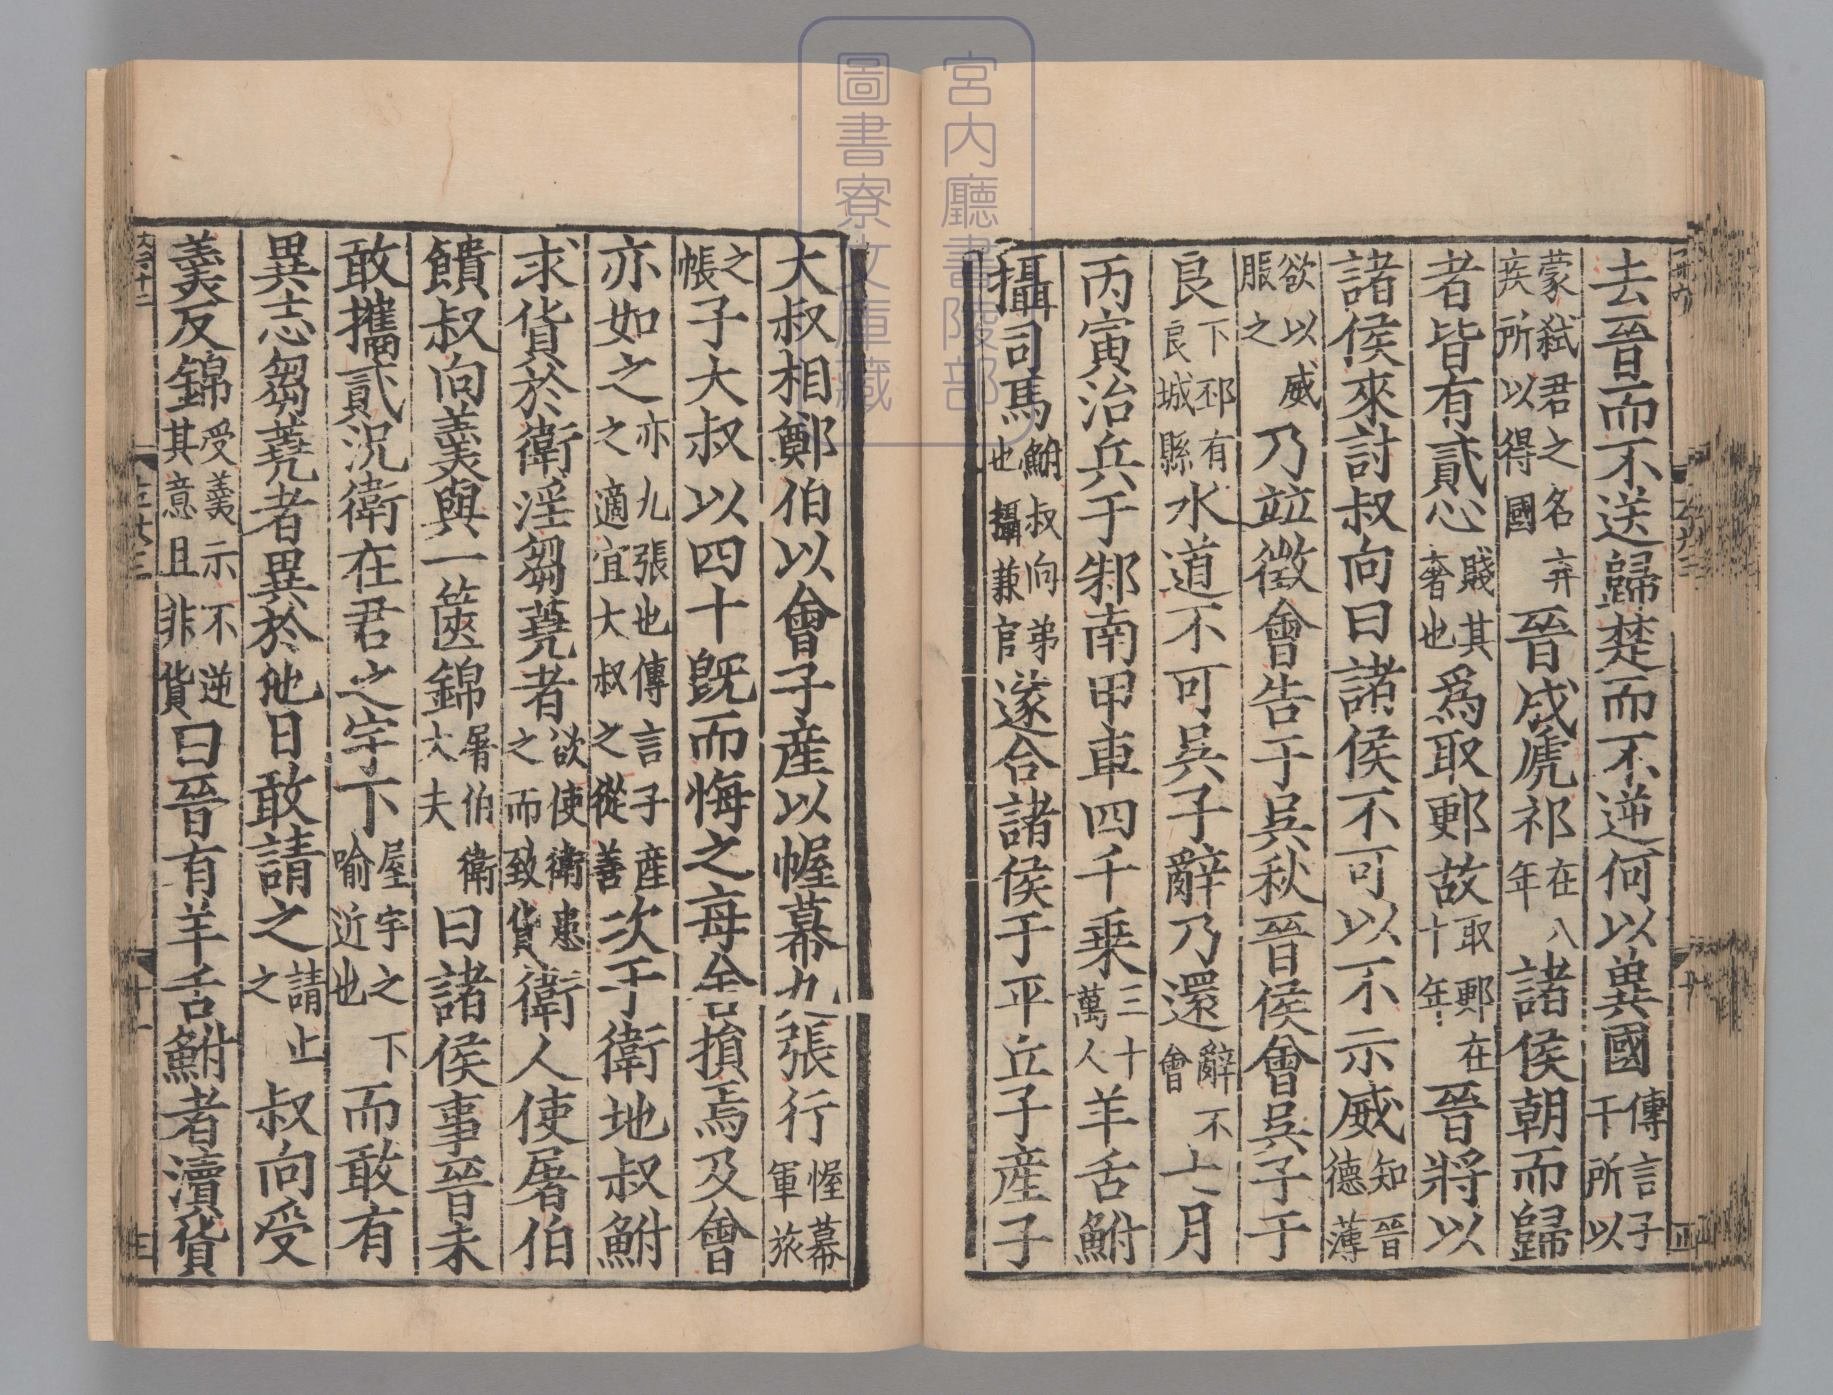 去晉而不送歸楚而不逆何以異國傳言子干所以
蒙弑君之名弃疾所以得國晉成虒祁在八年諸侯朝而歸
者皆有貳心賤其奢也爲取郠故取郠在十年晉將以
諸侯來討叔向曰諸侯不可以不示威知晉德薄
欲以威服之乃竝徵會告于吳秋晉侯會吳子于
良下邳有良城縣水道不可吳子辭乃還辭不會七月
丙寅治兵于邾南甲車四千乗三十萬人羊舌鮒
攝司馬鮒叔向弟也攝兼官遂合諸侯于平丘子産子
大叔相鄭伯以會子産以幄幕九張行幄幕軍旅
之帳子大叔以四十旣而悔之毎舍損焉及會
亦如之亦九張也傳言子産之適宜大叔之從善次于衛地叔鮒
求貨於衛淫芻蕘者欲使衛患之而致貨衛人使屠伯
饋叔向羹與一篋錦屠伯衛大夫曰諸侯事晉未
敢攜貳況衛在君之宇下屋宇之下喻近也而敢有
異志芻蕘者異於他日敢請之請止之叔向受
羹反錦受羹示不逆其意且非貨曰晉有羊舌鮒者瀆貨
宮内廳書陵部
圖書寮文庫藏